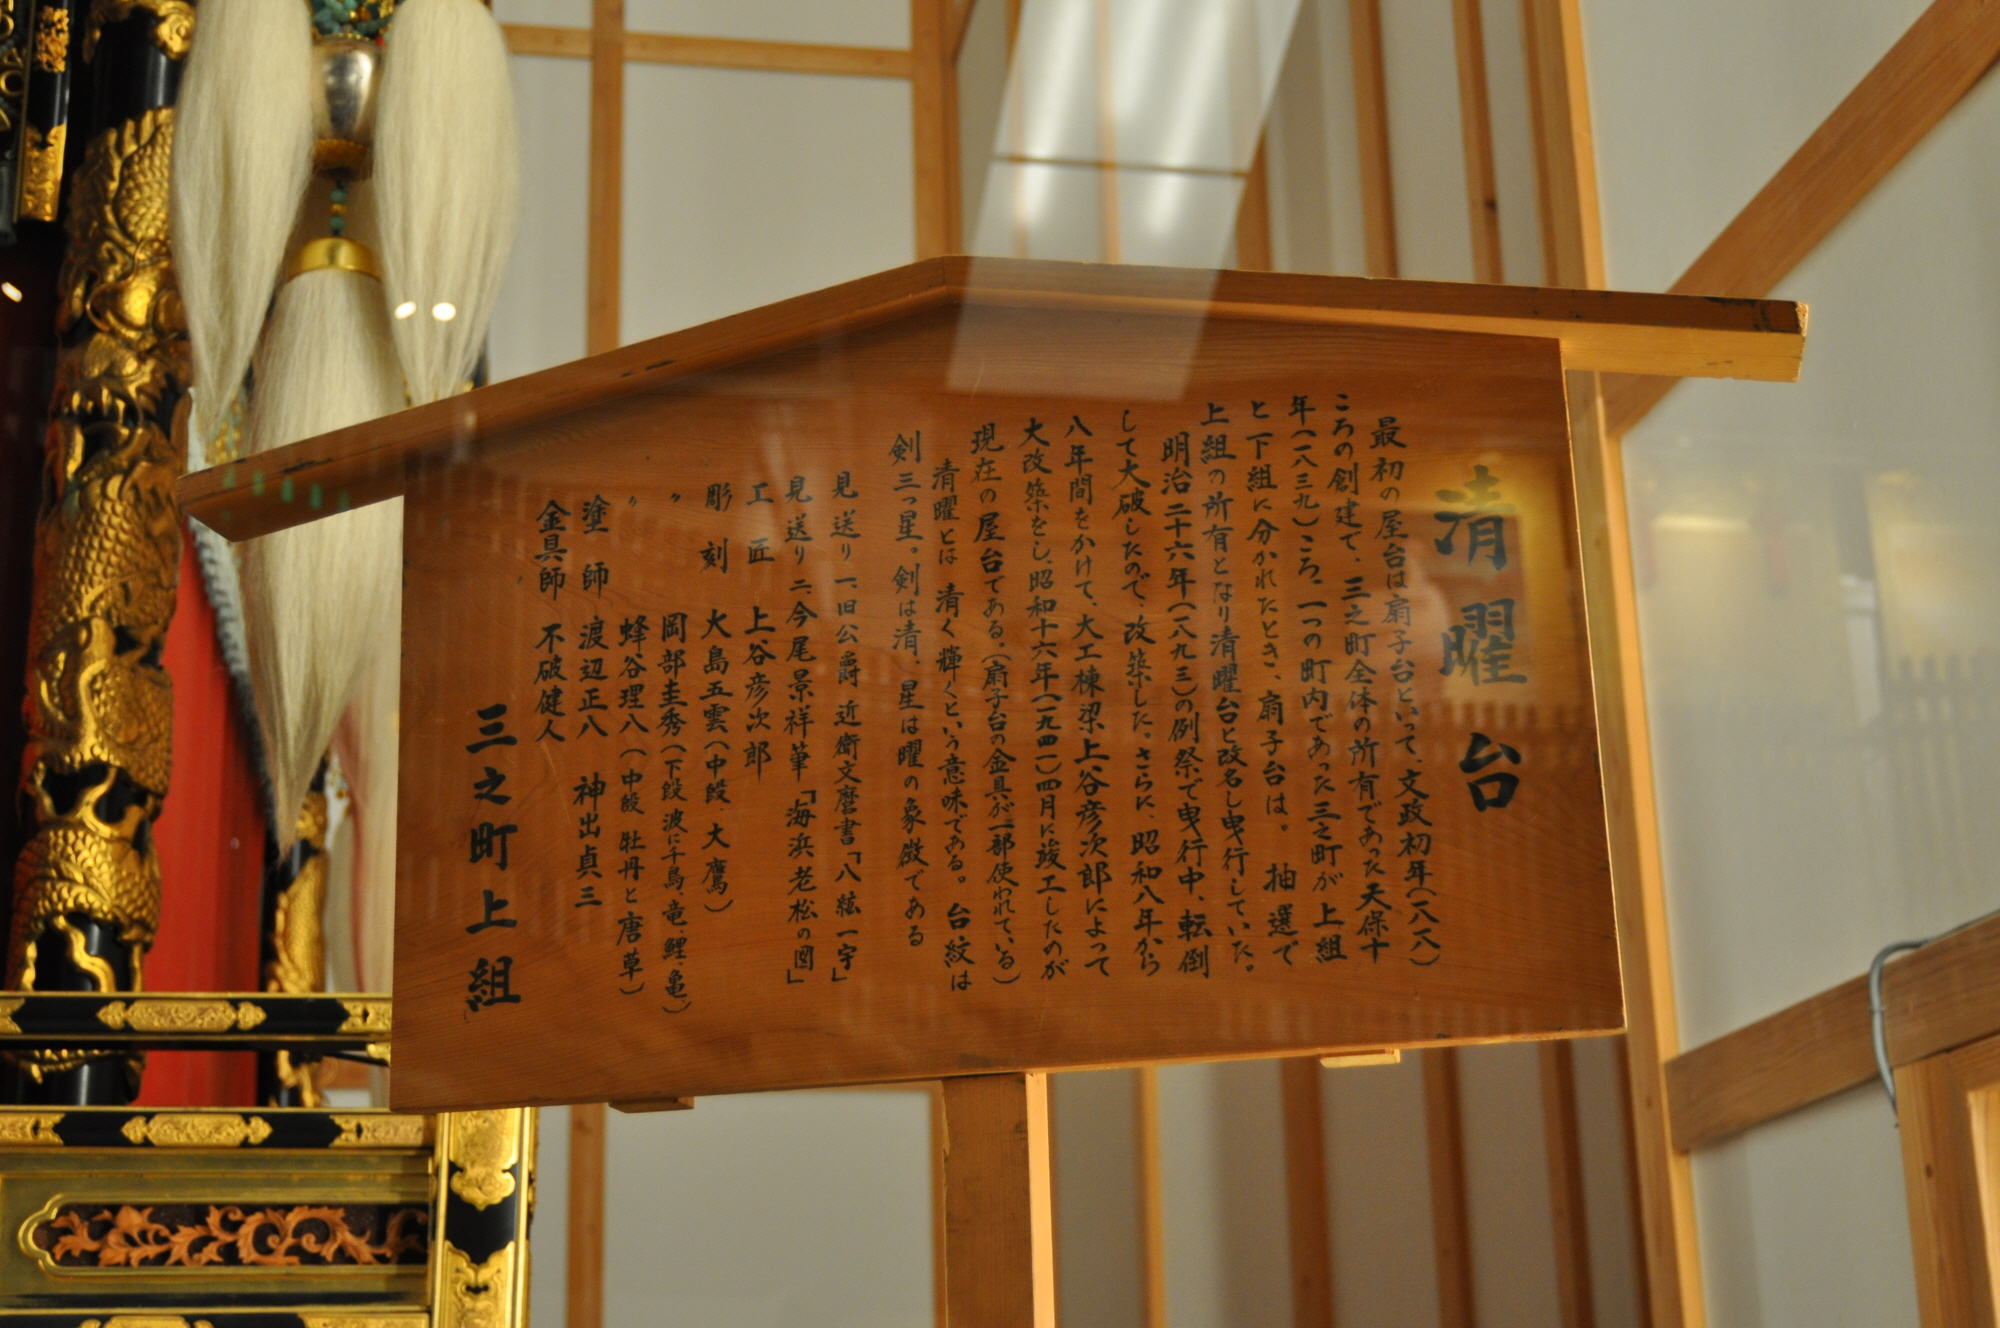 清曜台
最初の屋台は扇子台といって、文政初年(一八一八)
ころの創建で、三之町全体の所有であった天保十
年(一八三九)ころ、一つの町内であった三之町が上組
と下組に分かれたとき、扇子台は。抽選で
上組の所有となり清曜台と改名し曳行していた。
明治二十六年(一八九三)の例祭で曳行中、転倒
して大破したので、改築した。さらに、昭和八年から
八年間をかけて、大工棟梁上谷彦次郎によって
大改築をし、昭和十六年(一九四一)四月に竣工したのが
現在の屋台である。(扇子台の金具が一部使われている)
清曜とは 清く輝くという意味である。台紋は
剣三つ星。剣は清、星は曜の象徴である
見送り 一、旧公爵 近衛文麿書「八紘一宇」
見送り 二、今尾景祥筆「海浜老松の図」
工匠 上谷彦次郎
彫刻 大島五雲(中段 大鷹)
〃 岡部圭秀(下段 波に千鳥、竜、鯉、亀、)
〃 蜂谷理八(中段 牡丹と唐草)
塗師 渡辺正八 神出貞三
金具師 不破健人
三之町上組